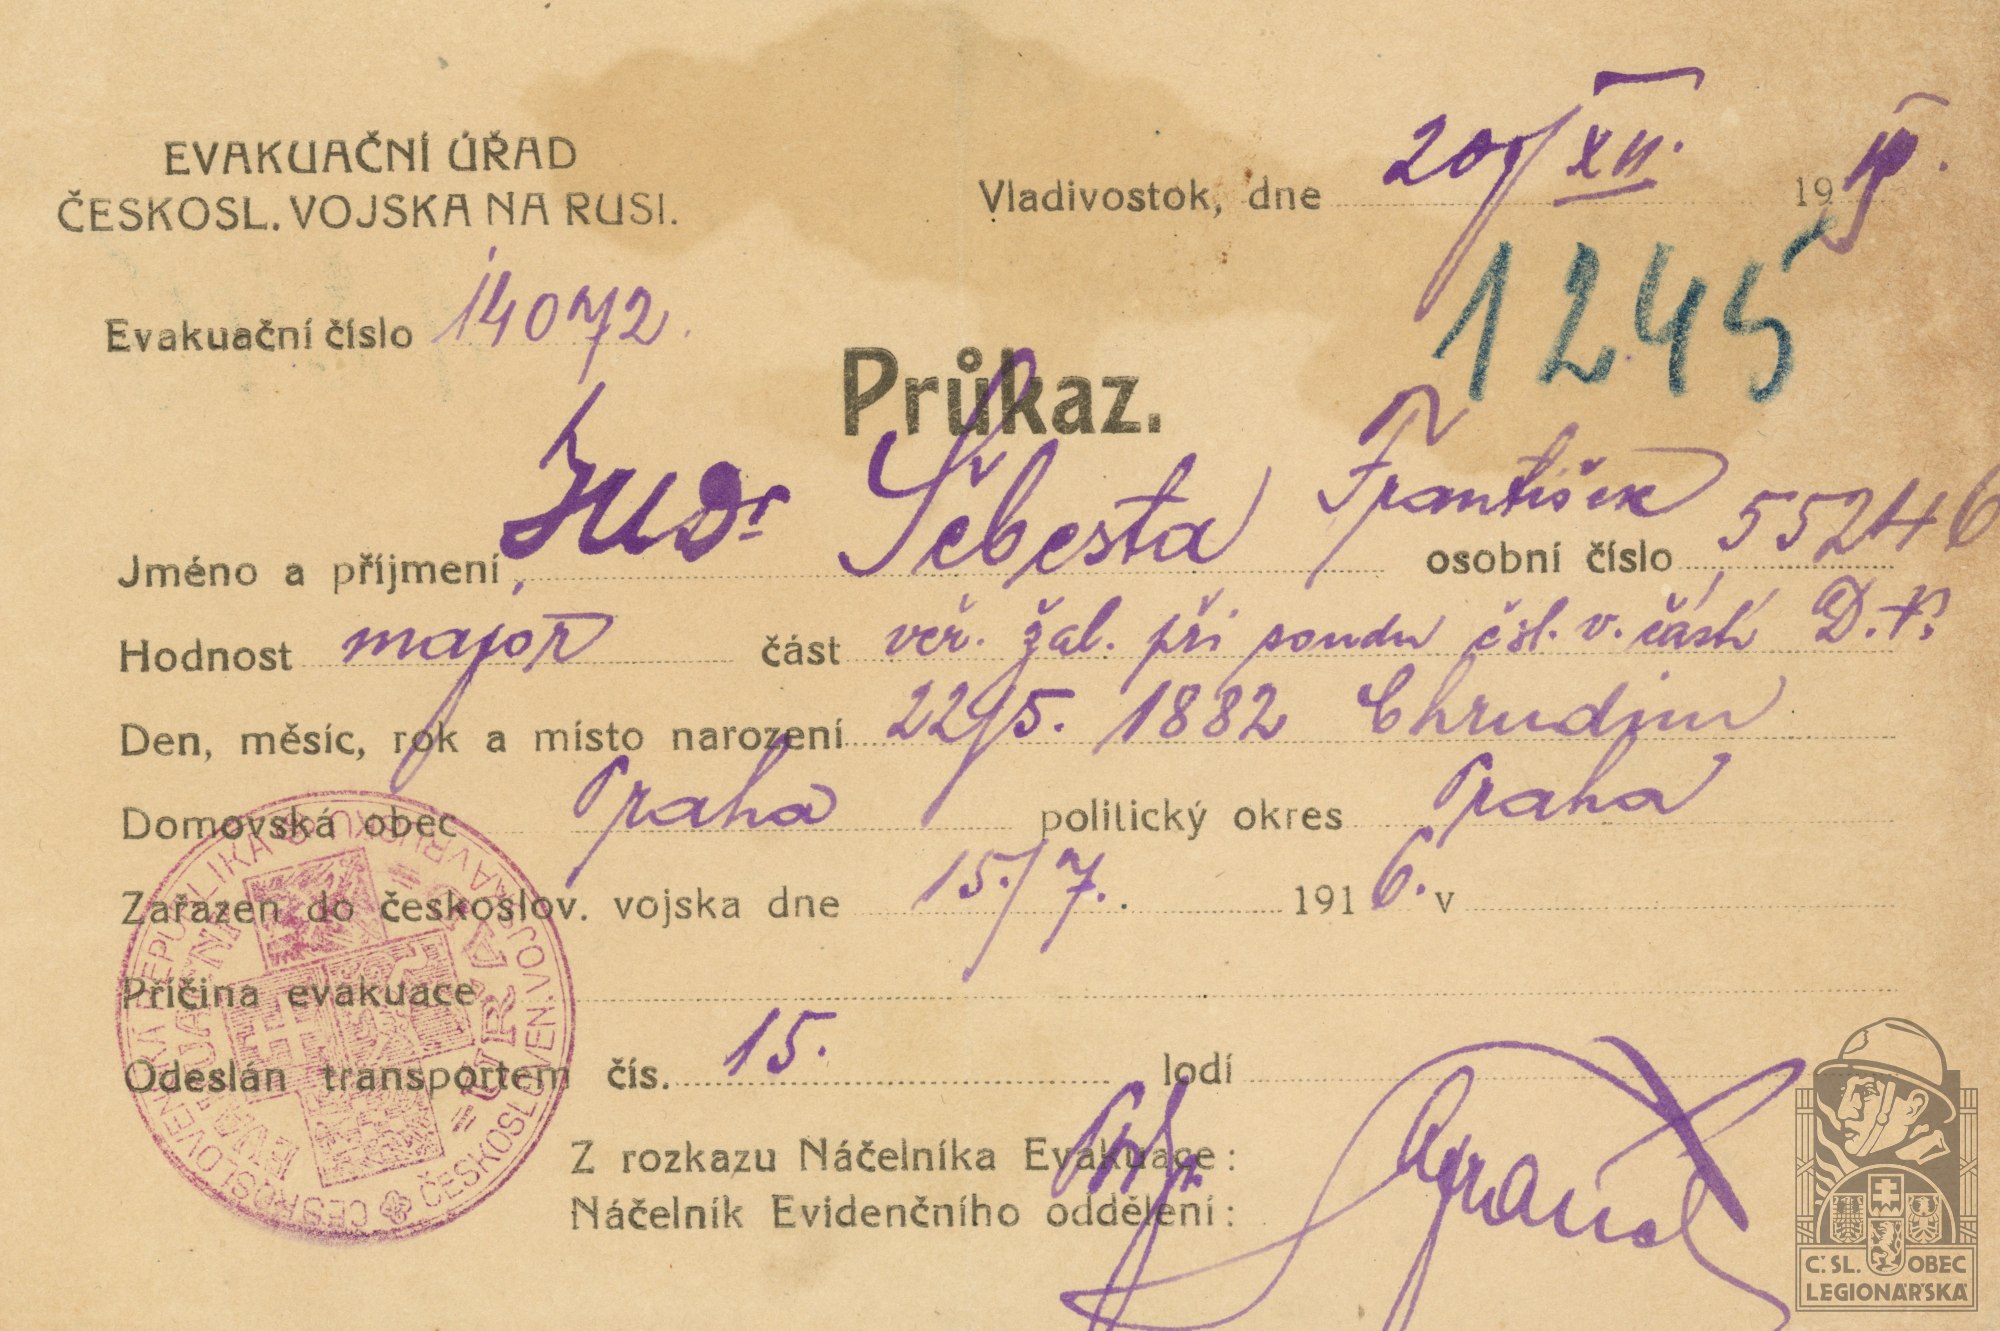 EVAKUAČNÍ ÚŘAD
ČESKOSL. VOJSKA NA RUSI.
Vladivostok, dne 20/XII. 1919.
1245
Evakuační číslo 14072.
Průkaz.
Jméno a příjmení, JUDr Šebesta František osobní číslo 55246
Hodnost major část veř. žal. při soudu čsl. v. částí D.V.
Den, měsíc, rok a místo narození 22/5. 1882 Chrudim
Domovská obec Praha politický okres Praha
Zařazen do českoslov. vojska dne 15./7. 1916. v
Příčina evakuace
Odeslán transportem čís. 15. lodí
Z rozkazu Náčelníka Evakuace:
Náčelník Evidenčního oddělení:
ČESKOSLOVENSKÁ REPUBLIKA
ČESKOSLOVEN. VOJSKA V RUSKU
EVAKUAČNÍ ÚŘAD
Č.SL. OBEC
LEGIONÁŘSKÁ